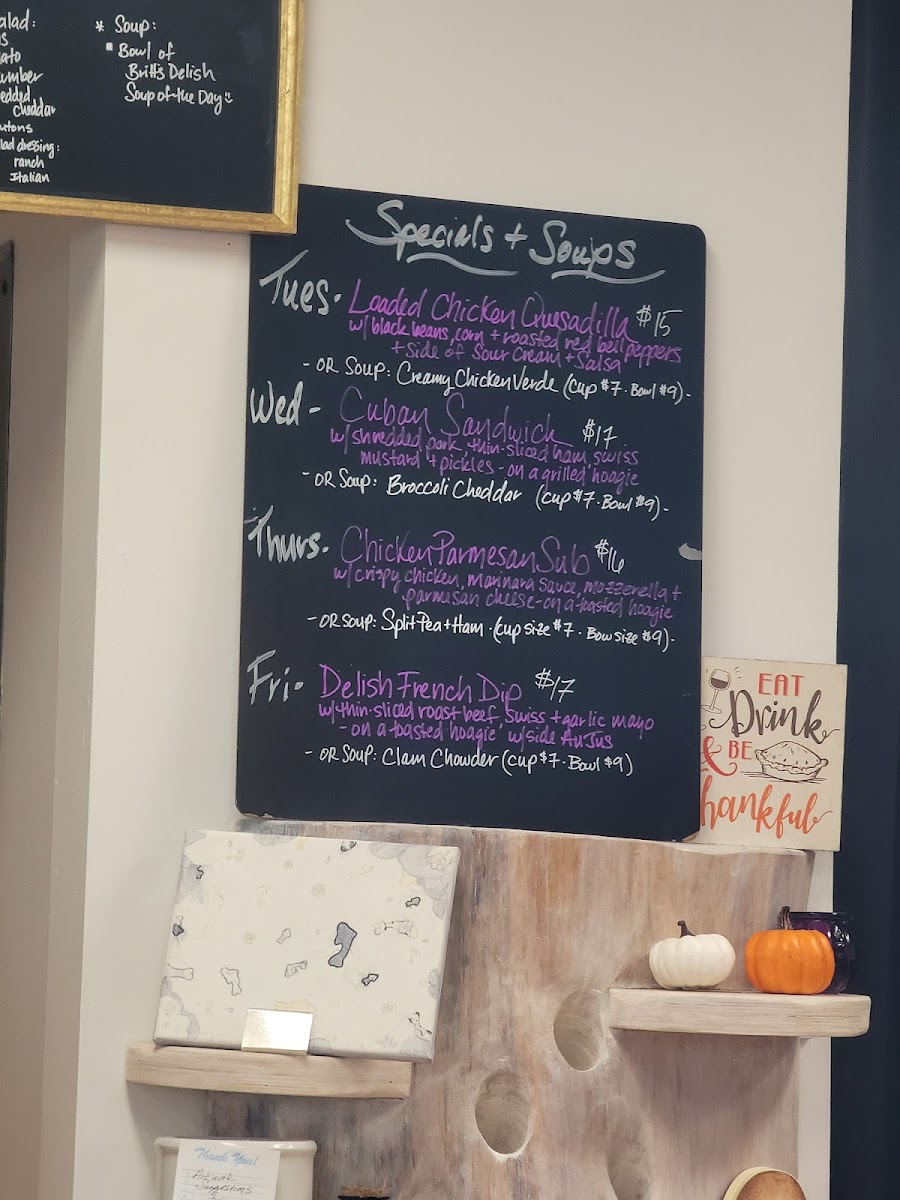 alad:
ato
umber
edded
cheddar
utons
lad dressing:
ranch
Italian
* Soup:
Bowl of
Britt's Delish
Soup of the Day
Specials + Soups
Tues. Loaded Chicken Quesadilla $15
w/ black beans, corn + roasted red bell peppers
+ side of Sour Cream + Salsa
- OR Soup: Creamy Chicken Verde (cup $7 - Bowl $9) -
Wed - Cuban Sandwick $17
w/ shredded pork, thin-sliced ham, swiss
mustard + pickles - on a grilled hoagie
- OR Soup: Broccoli Cheddar (cup $7 - Bowl $9) -
Thurs. Chicken Parmesan Sub $16
w/ crispy chicken, marinara sauce, mozzerella +
parmesan cheese - on a toasted hoagie
- OR Soup: Split Pea + Ham - (cup size $7 - Bowl size $9) -
Fri - Delish French Dip $17
w/ thin-sliced roast beef, Swiss + garlic mayo
- on a toasted hoagie w/ side Au Jus
- OR Soup: Clam Chowder (cup $7 - Bowl $9)
EAT
Drink
& BE
hankful
Thank You!
Artwork
Suggestions